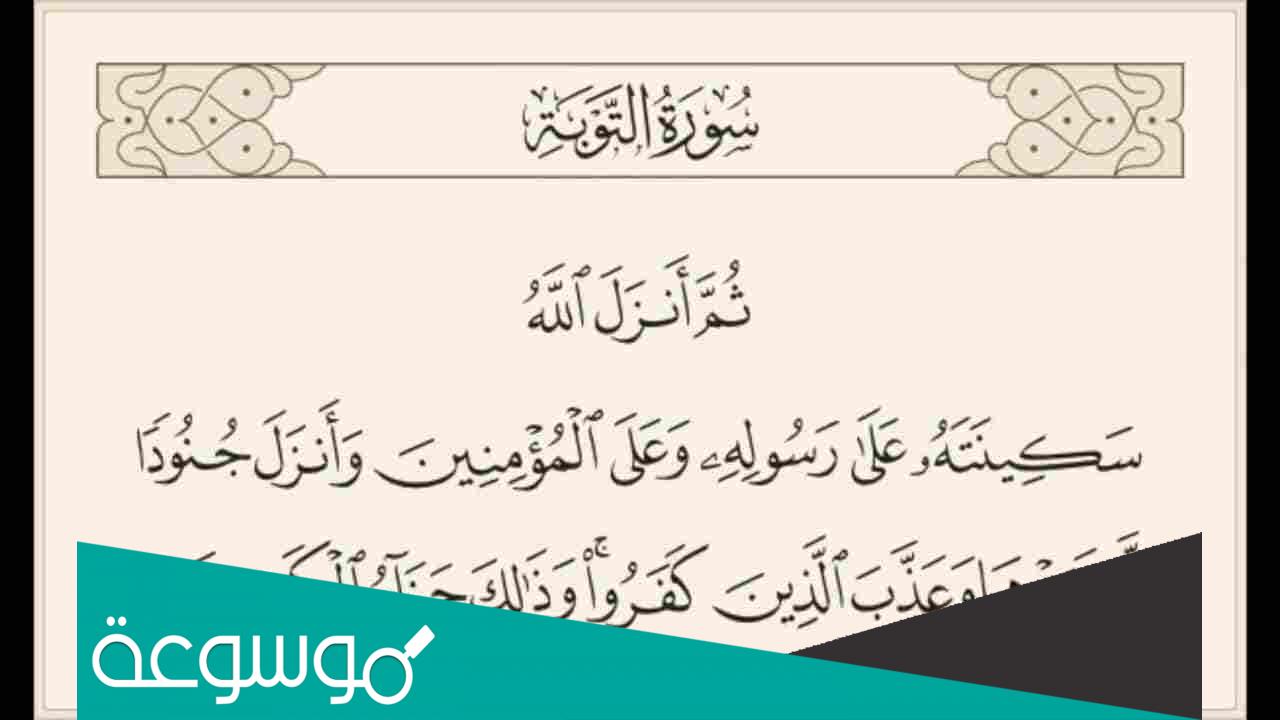 سُورَةُ التَّوۡبَةِ
ثُمَّ أَنزَلَ ٱللَّهُ
سَكِينَتَهُۥ عَلَىٰ رَسُولِهِۦ وَعَلَى ٱلۡمُؤۡمِنِينَ وَأَنزَلَ جُنُودٗا
وَعَذَّبَ ٱلَّذِينَ كَفَرُواْۚ وَذَٰلِكَ جَزَآءُ
موسوعة